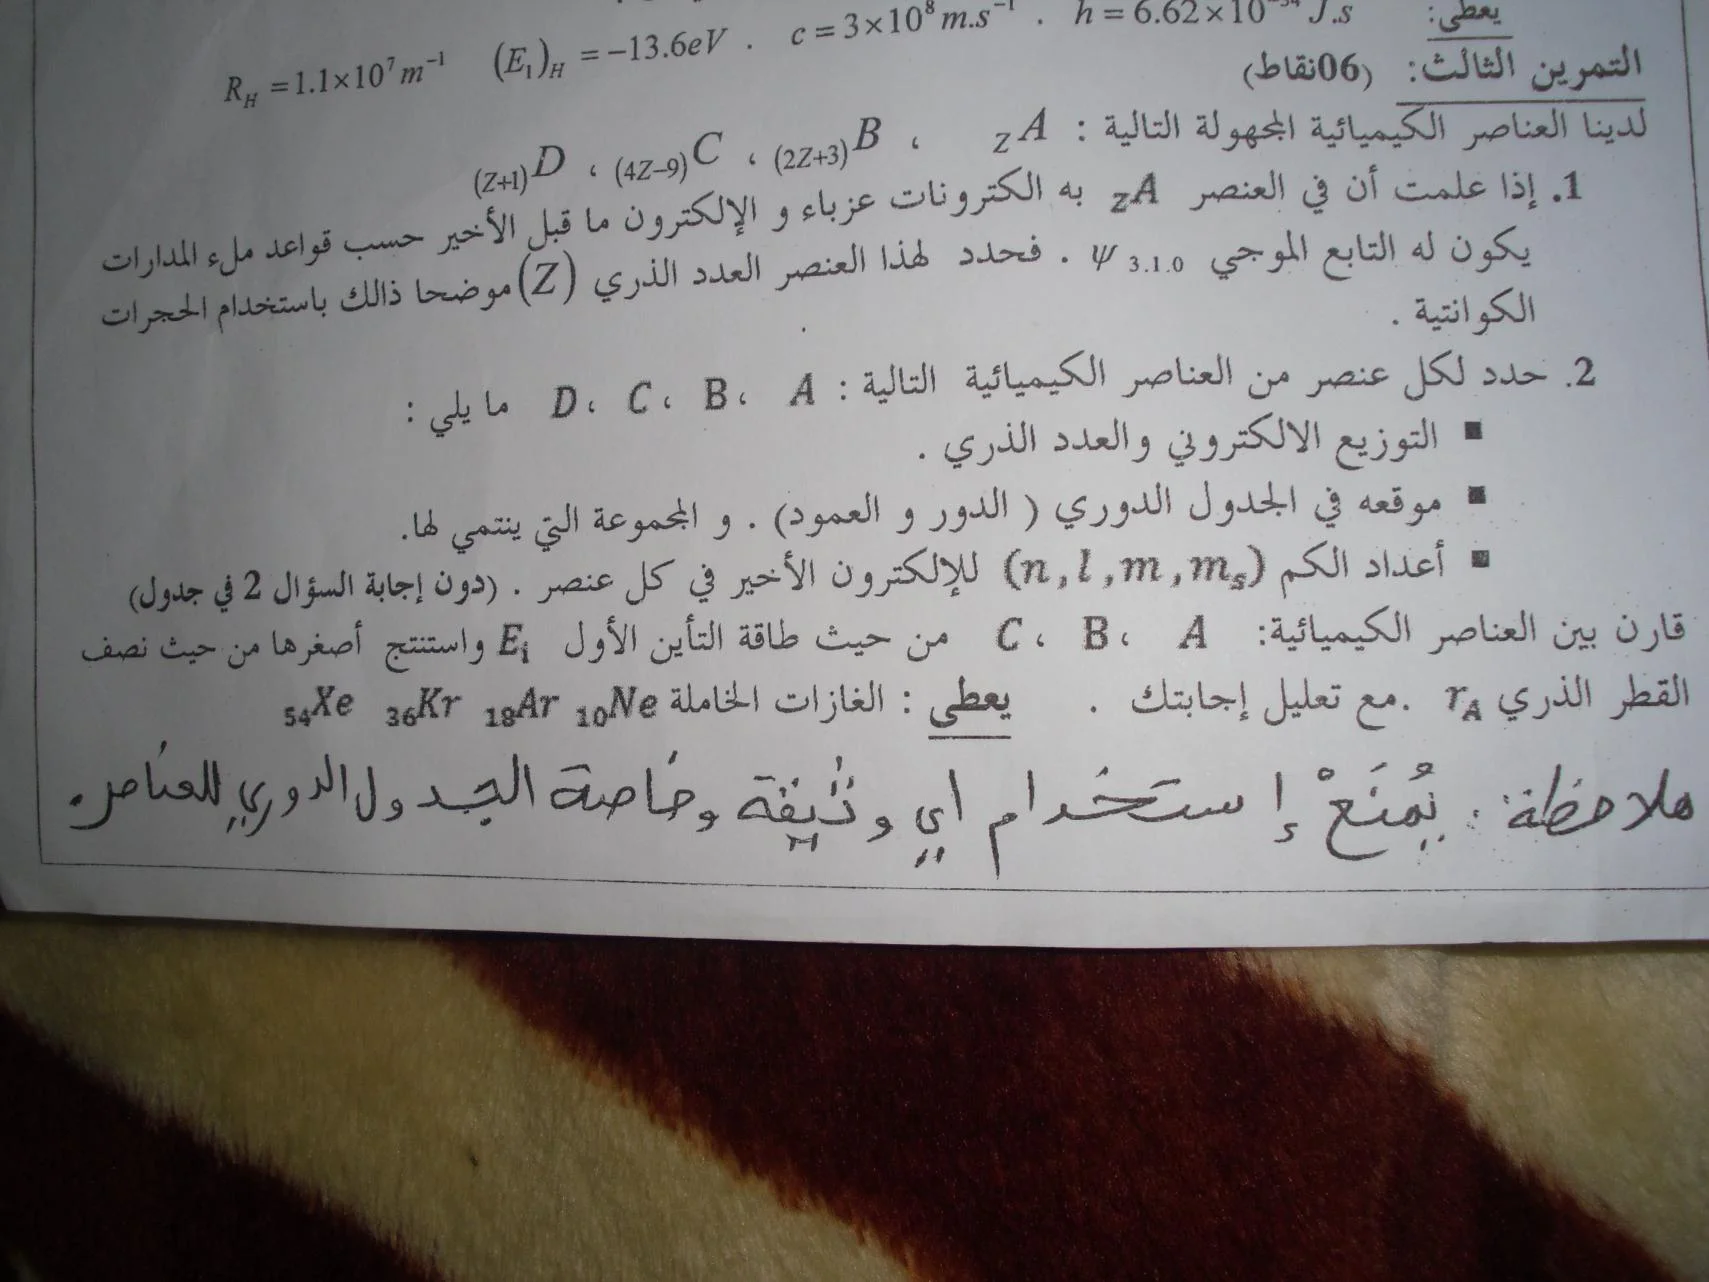 يعطى: h = 6.62×10⁻³⁴ J.s . c = 3×10⁸ m.s⁻¹ . (E₁)_H = −13.6eV R_H = 1.1×10⁷ m⁻¹
التمرين الثالث: (06نقاط)
لدينا العناصر الكيميائية المجهولة التالية : _Z A ، _(2Z+3) B ، _(4Z−9) C ، _(Z+1) D
1. إذا علمت أن في العنصر _Z A به الكترونات عزباء و الإلكترون ما قبل الأخير حسب قواعد ملء المدارات
يكون له التابع الموجي ψ ₃.₁.₀ . فحدد لهذا العنصر العدد الذري (Z) موضحا ذالك باستخدام الحجرات
الكوانتية .
2. حدد لكل عنصر من العناصر الكيميائية التالية : A ، B ، C ، D ما يلي :
▪ التوزيع الالكتروني والعدد الذري .
▪ موقعه في الجدول الدوري ( الدور و العمود) . و المجموعة التي ينتمي لها.
▪ أعداد الكم (n , l , m , mₛ) للإلكترون الأخير في كل عنصر . (دون إجابة السؤال 2 في جدول)
قارن بين العناصر الكيميائية: A ، B ، C من حيث طاقة التأين الأول Eᵢ واستنتج أصغرها من حيث نصف
القطر الذري r_A .مع تعليل إجابتك . يعطى : الغازات الخاملة ₁₀Ne ₁₈Ar ₃₆Kr ₅₄Xe
ملاحظة: يُمنَعْ إستخدام اي وثيقة وخاصة الجدول الدوري للعناصر.